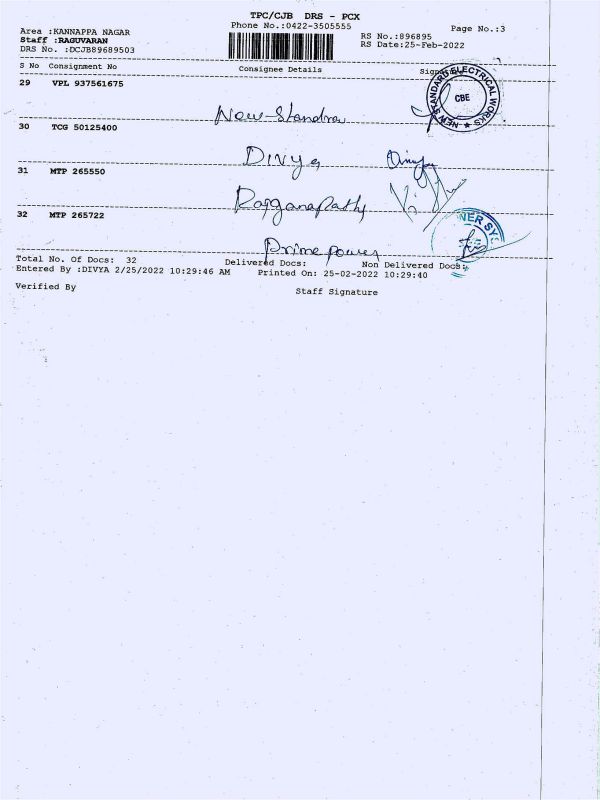 TPC/CJB DRS - PCX
Area :KANNAPPA NAGAR
Phone No.:0422-3505555
Page No.:3
Staff :RAGUVARAN
RS No.:896895
DRS No. :DCJB89689503
RS Date:25-Feb-2022
S No Consignment No Consignee Details
29 VPL 937561675
NEW STANDARD ELECTRICAL WORKS
CBE
New Standard
30 TCG 50125400
Divya
31 MTP 265550
Rajganapathy
32 MTP 265722
Prime power
Total No. Of Docs: 32 Delivered Docs: Non Delivered Docs:
Entered By :DIVYA 2/25/2022 10:29:46 AM Printed On: 25-02-2022 10:29:40
Verified By
Staff Signature